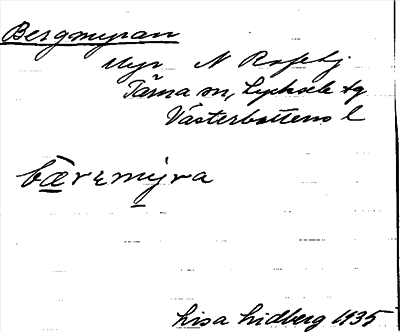 Bergmyran
Myr N
Tärna sn, Lycksele tg
Västerbottens l
bærɛmyra
Lisa Lidberg 1935